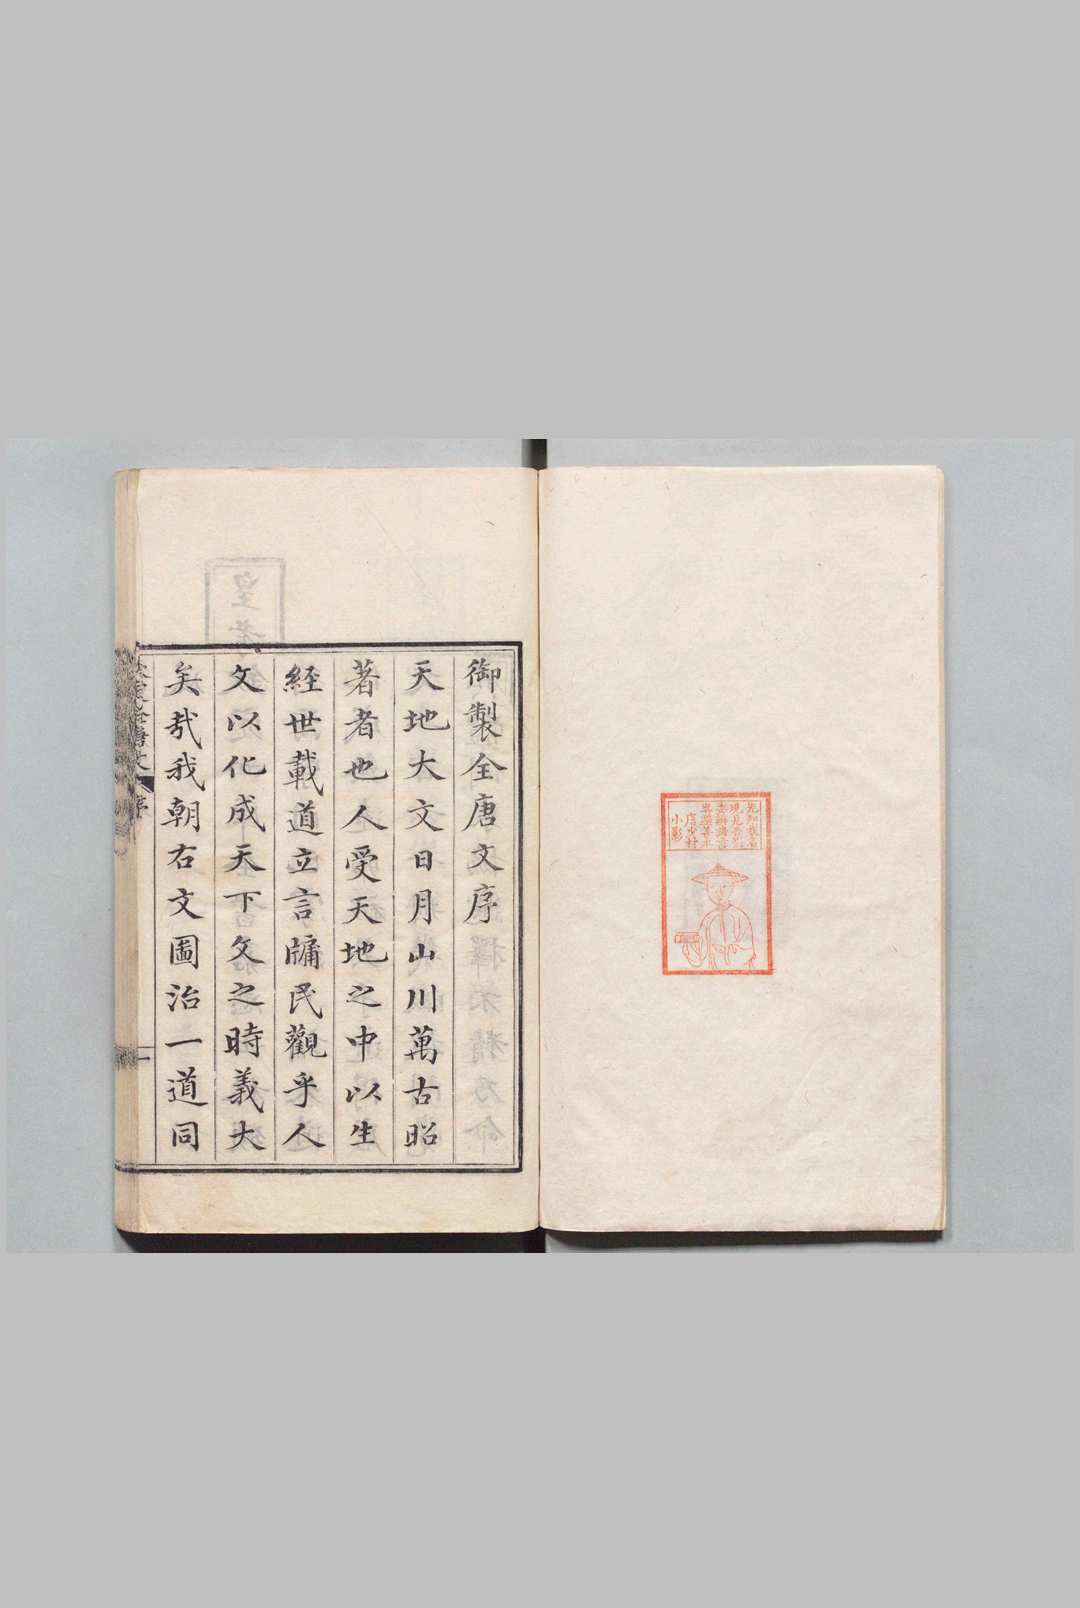 御製全唐文序
天地大文日月山川萬古昭
著者也人受天地之中以生
經世載道立言牖民觀乎人
文以化成天下文之時義大
矣哉我朝右文圖治一道同
全唐文
序
一
小影